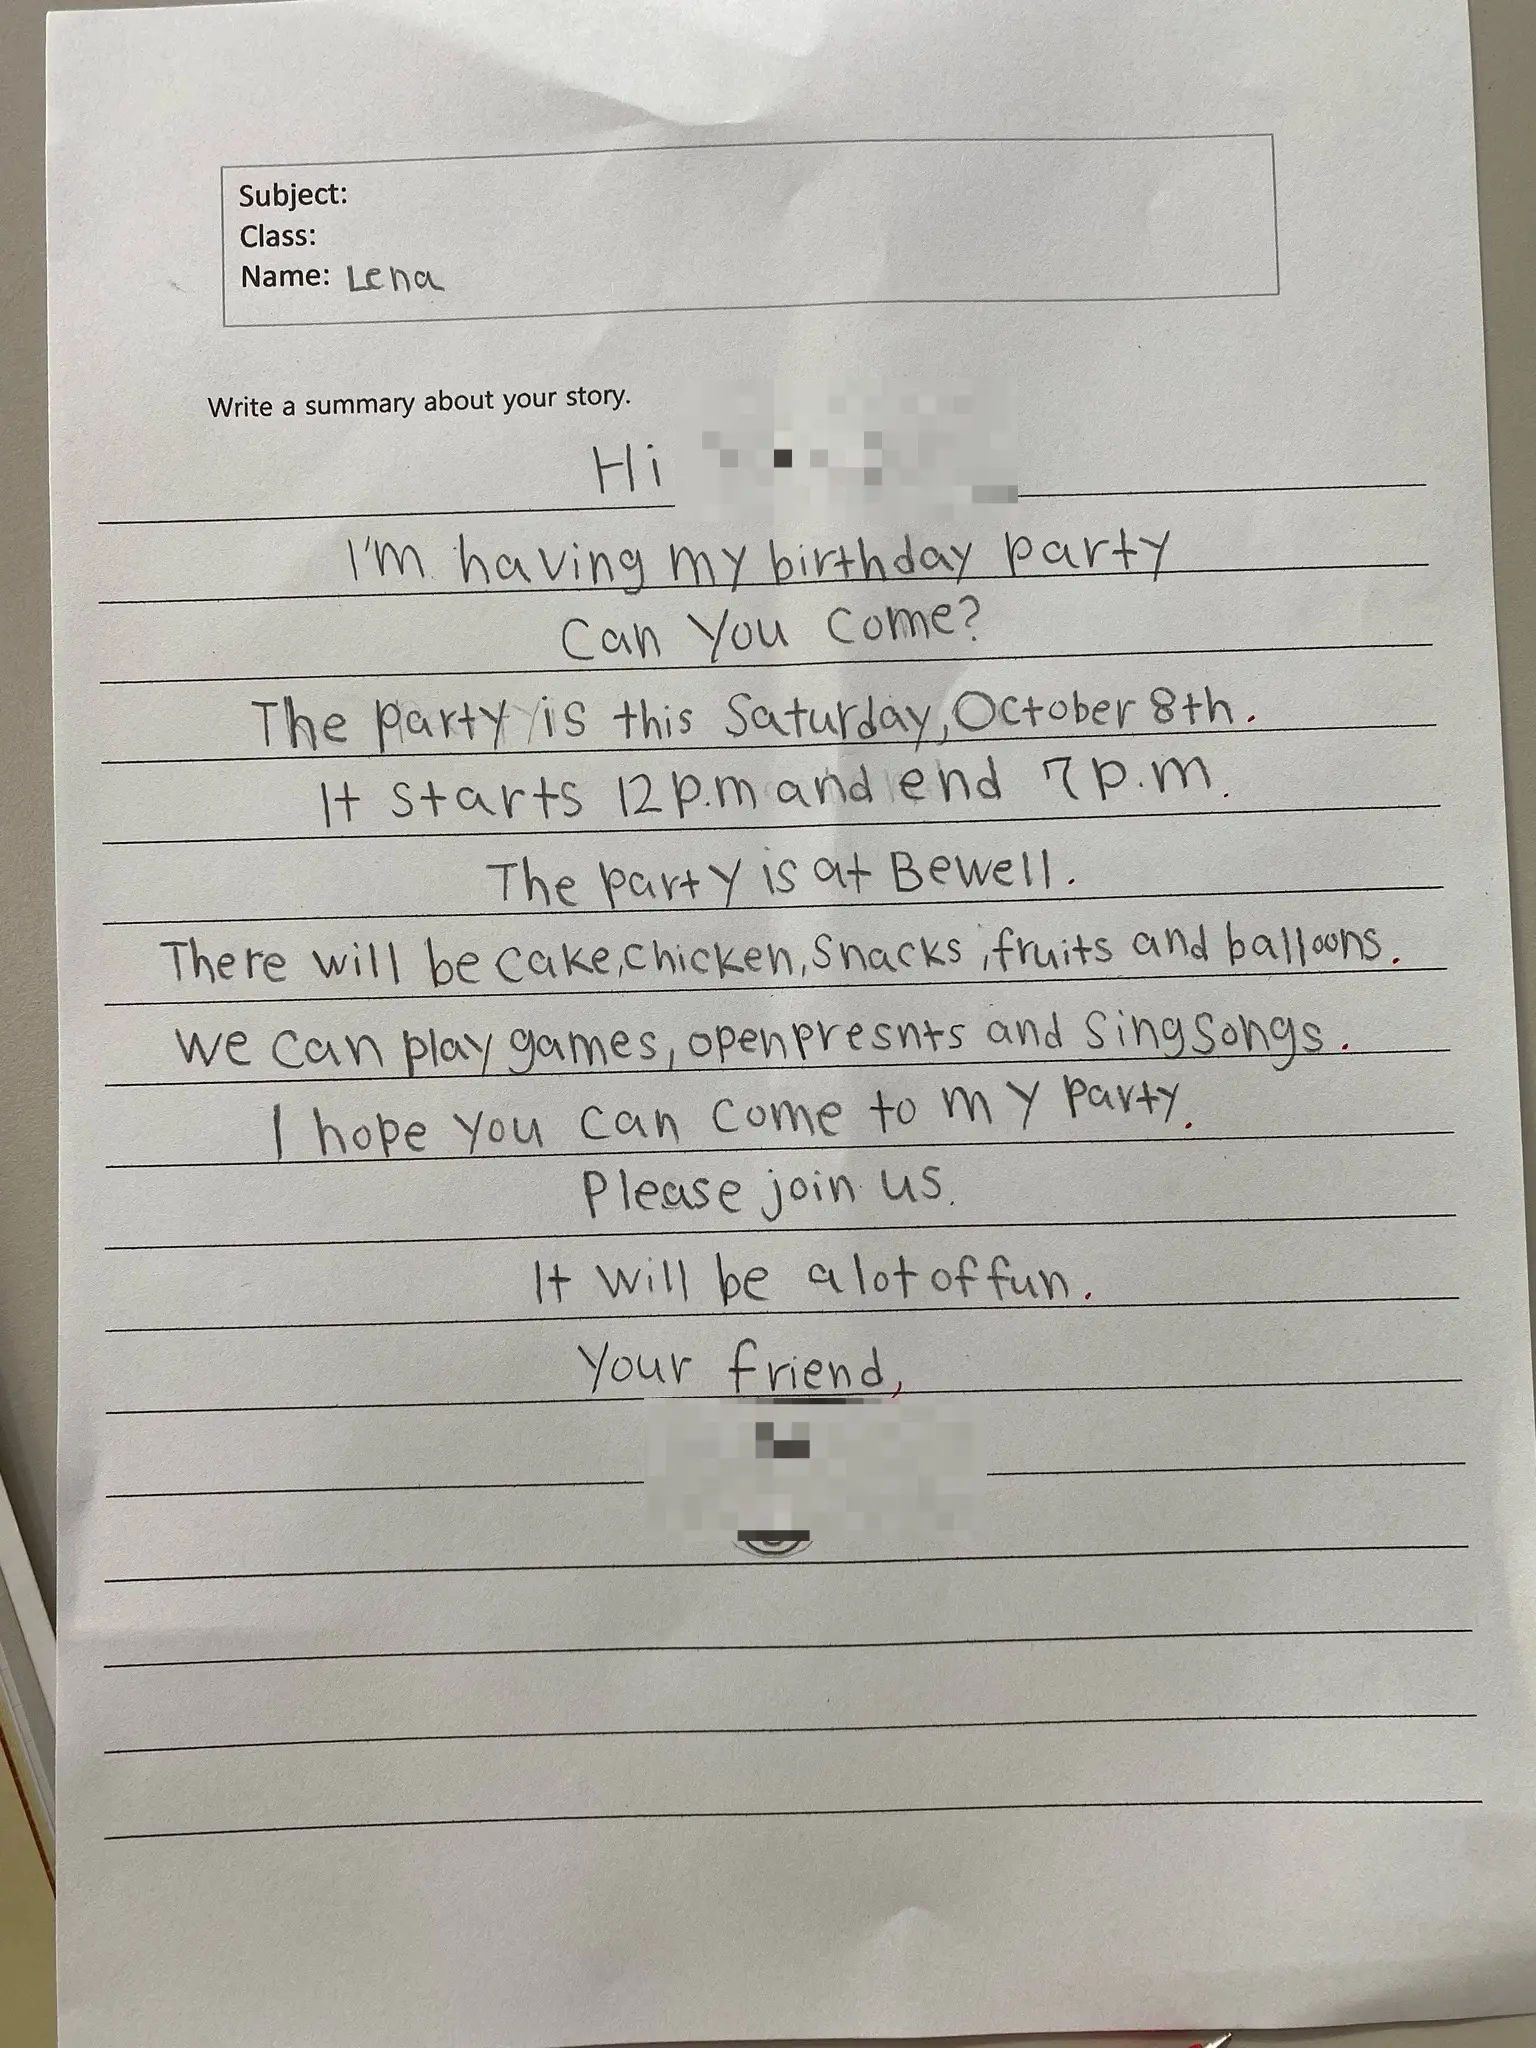 Subject:
Class:
Name: Lena
Write a summary about your story.
Hi
I'm having my birthday party
Can you come?
The party is this Saturday, October 8th.
It starts 12 p.m and end 7 p.m.
The party is at Bewell.
There will be cake, chicken, snacks, fruits and balloons.
We can play games, open presnts and sing songs.
I hope you can come to my party.
Please join us.
It will be a lot of fun.
Your friend,